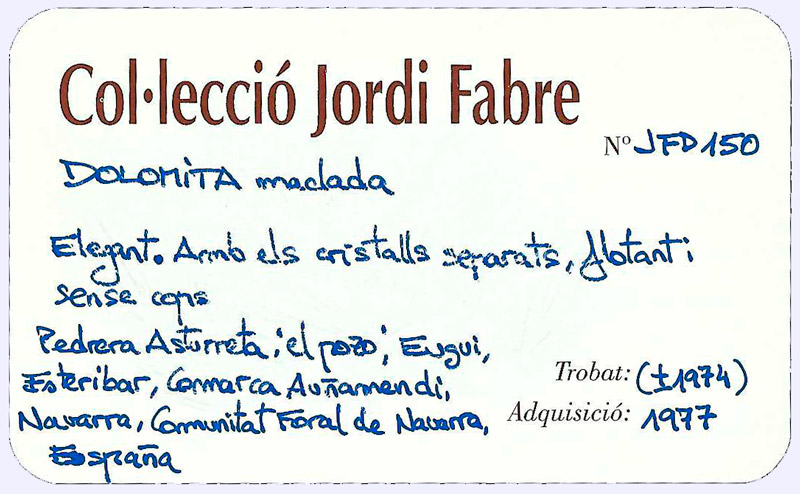 Col·lecció Jordi Fabre
Nº JFD150
DOLOMITA maclada
Elegant. Amb els cristalls separats, flotant i
sense cops
Pedrera Asturreta, 'el pozo', Eugui,
Esteribar, Comarca Auñamendi,
Navarra, Comunitat Foral de Navarra,
España
Trobat: (±1974)
Adquisició: 1977